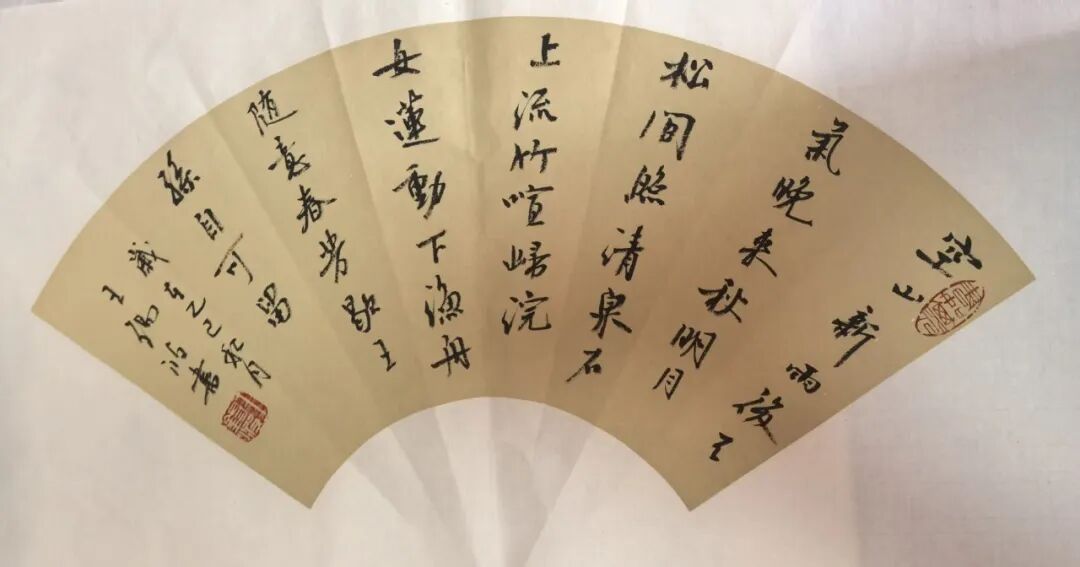 空山新雨後天
氣晚来秋明月
松間照清泉石
上流竹喧歸浣
女蓮動下漁舟
随意春芳歇王
孫自可留
歲在乙巳月
王書